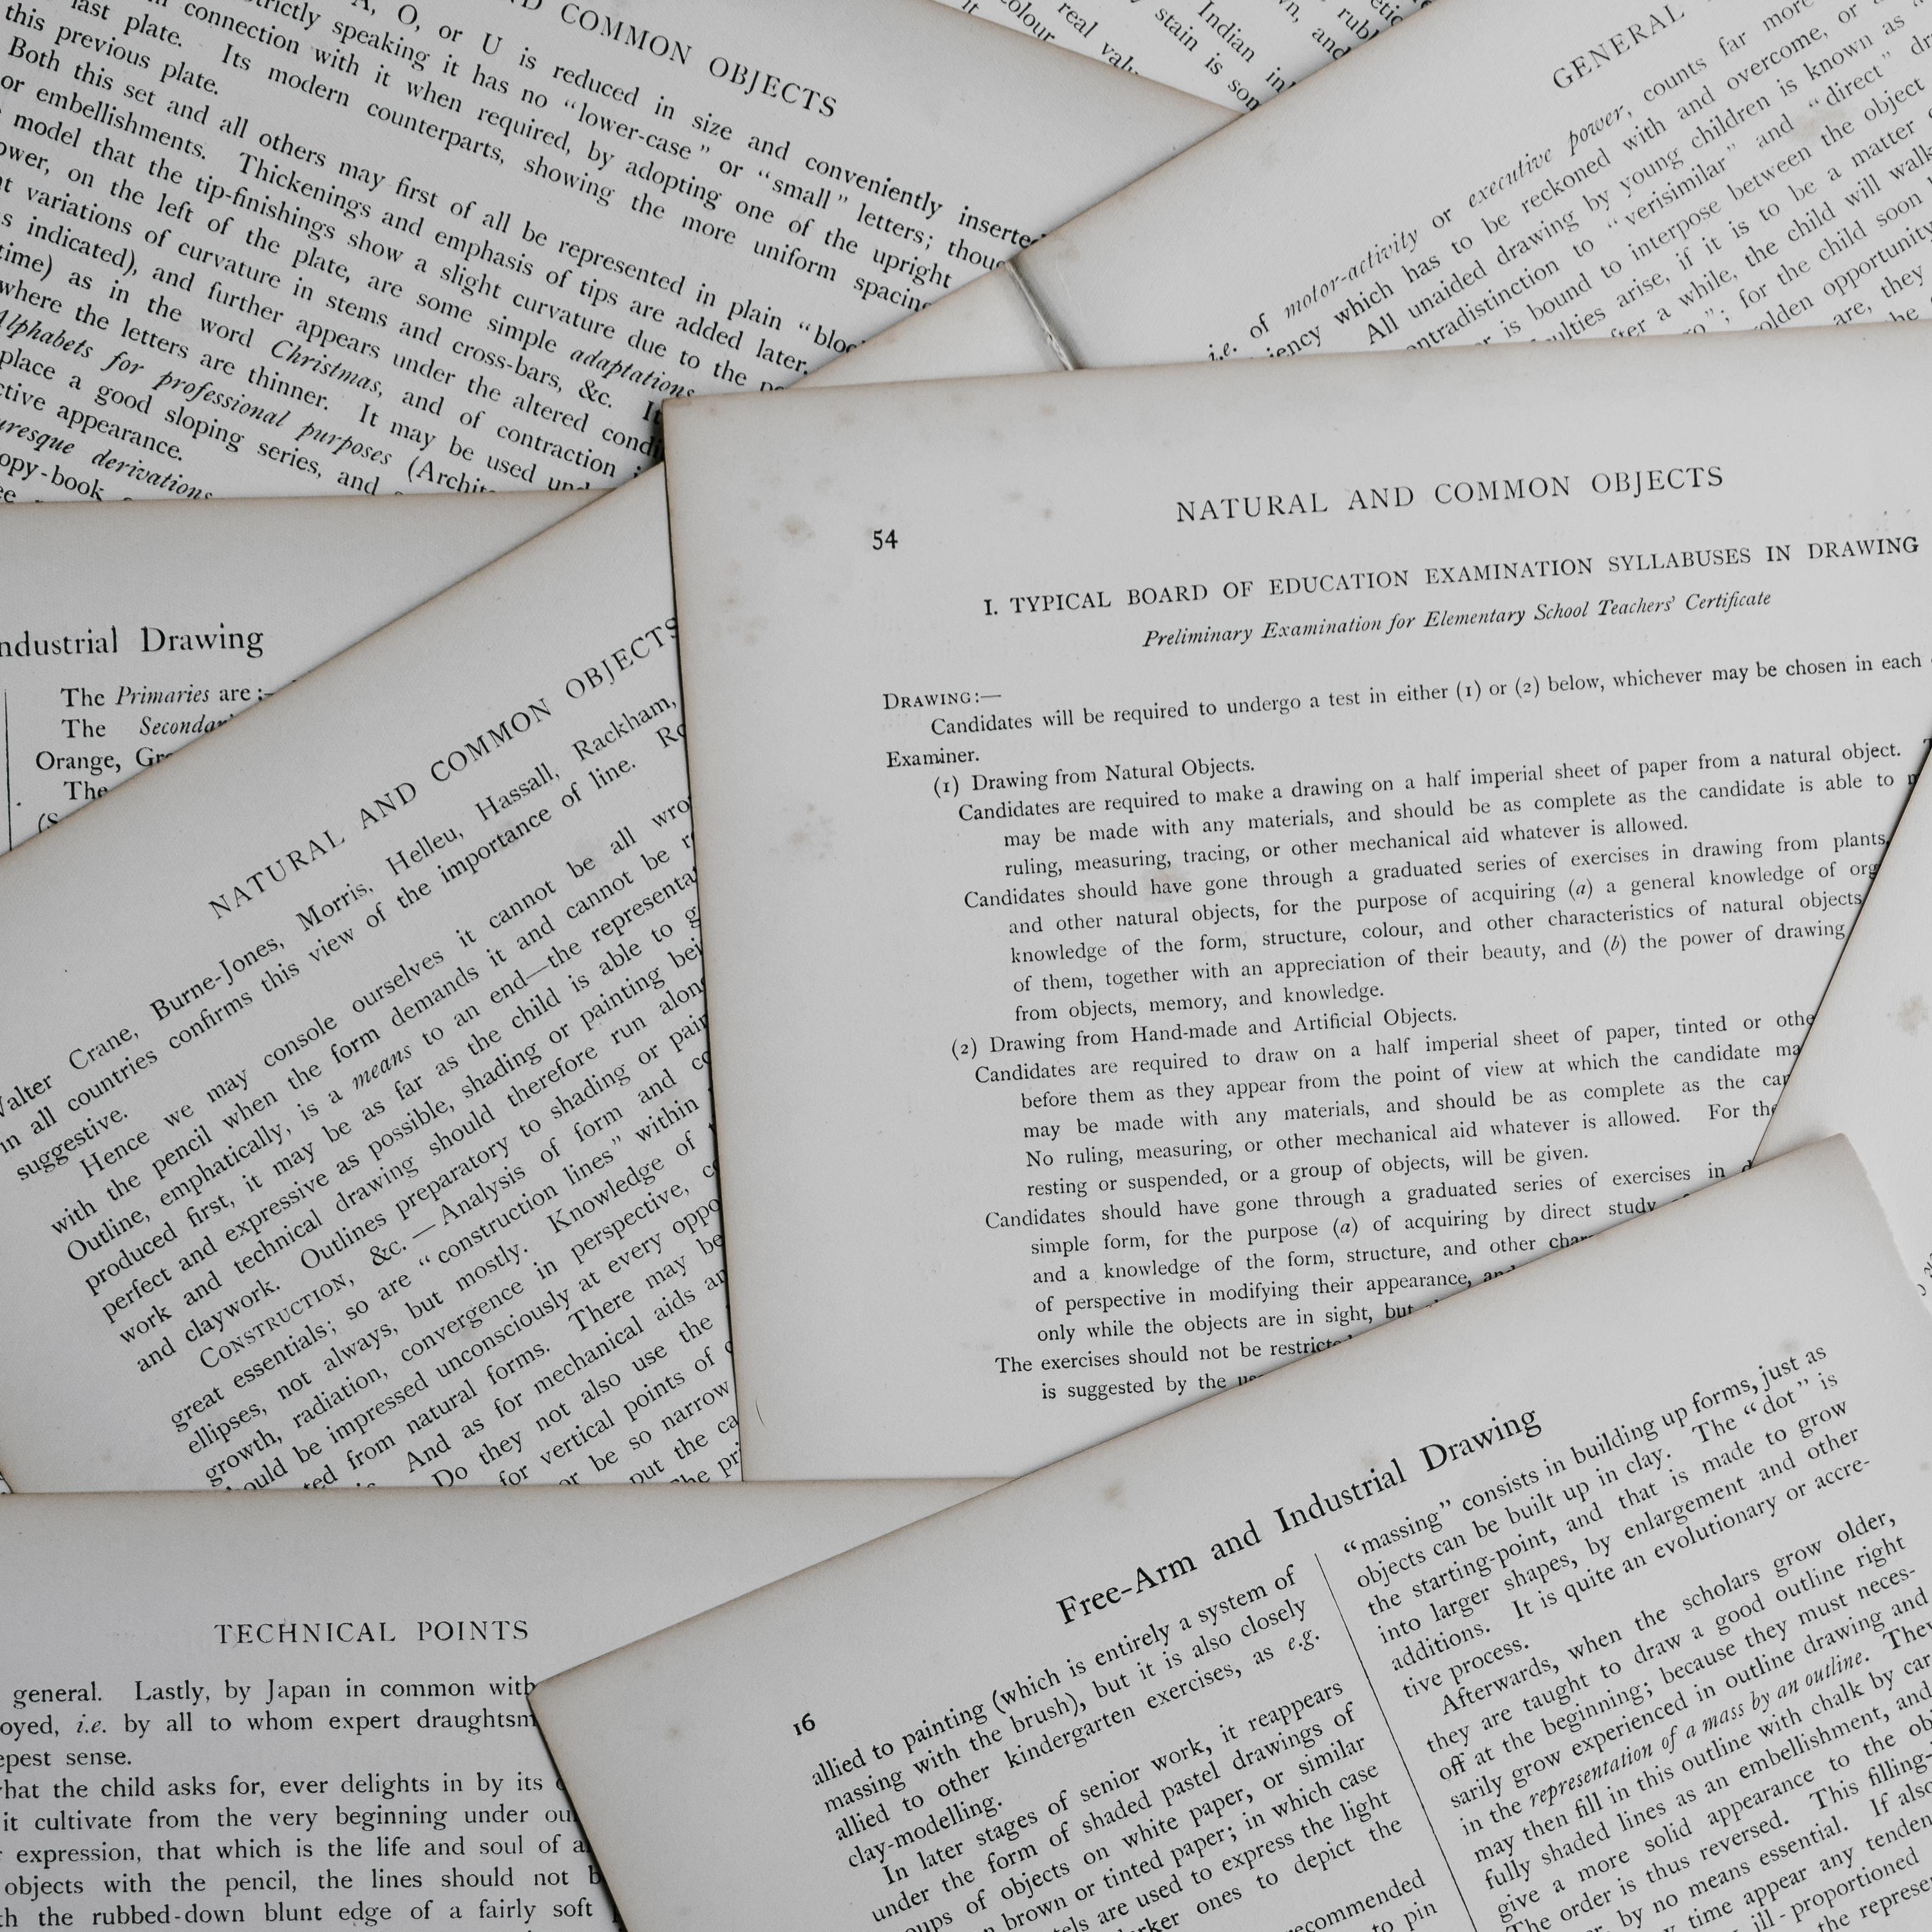 AND COMMON OBJECTS
A, O, or U is reduced in size and conveniently
strictly speaking it has no “lower-case” or “small” letters;
connection with it when required, by adopting one of the upright
last plate. Its modern counterparts, showing the more uniform
this previous plate.
Both this set and all others may first of all be represented in plain
or embellishments. Thickenings and emphasis of tips are added later.
model that the tip-finishings show a slight curvature due to the
on the left of the plate, are some simple adaptations
variations of curvature in stems and cross-bars, &c.
indicated), and further appears under the altered
time) as in the word Christmas, and of contraction
where the letters are thinner. It may be used
Alphabets for professional purposes
place a good sloping series, and
appearance.
derivations
copy-book
colour
real
stain is
Indian
and
GENERAL
i.e. of motor-activity or executive power, counts far more
which has to be reckoned with and overcome, or
All unaided drawing by young children is known as
to “verisimilar” and “direct”
is bound to interpose between the object
arise, if it is to be a matter
a while, the child will walk
for the child soon
opportunity
are, they
Industrial Drawing
The Primaries are :—
The
Orange,
The
NATURAL AND COMMON OBJECTS
Walter Crane, Burne-Jones, Morris, Helleu, Hassall, Rackham,
in all countries confirms this view of the importance of line.
suggestive.
Hence we may console ourselves it cannot be all
with the pencil when the form demands it and cannot be
Outline, emphatically, is a means to an end—the
produced first, it may be as far as the child is able to
perfect and expressive as possible, shading or painting
work and technical drawing should therefore run
and claywork. Outlines preparatory to shading or
CONSTRUCTION, &c.—Analysis of form and
great essentials; so are “construction lines” within
ellipses, not always, but mostly. Knowledge of
growth, radiation, convergence in perspective,
should be impressed unconsciously at every
from natural forms. There may be
And as for mechanical aids
Do they not also use the
for vertical points of
be so narrow
put the
54
NATURAL AND COMMON OBJECTS
I. TYPICAL BOARD OF EDUCATION EXAMINATION SYLLABUSES IN DRAWING
Preliminary Examination for Elementary School Teachers' Certificate
DRAWING:—
Candidates will be required to undergo a test in either (1) or (2) below, whichever may be chosen in each
Examiner.
(1) Drawing from Natural Objects.
Candidates are required to make a drawing on a half imperial sheet of paper from a natural object.
may be made with any materials, and should be as complete as the candidate is able to
ruling, measuring, tracing, or other mechanical aid whatever is allowed.
Candidates should have gone through a graduated series of exercises in drawing from plants,
and other natural objects, for the purpose of acquiring (a) a general knowledge of
knowledge of the form, structure, colour, and other characteristics of natural objects
of them, together with an appreciation of their beauty, and (b) the power of drawing
from objects, memory, and knowledge.
(2) Drawing from Hand-made and Artificial Objects.
Candidates are required to draw on a half imperial sheet of paper, tinted or
before them as they appear from the point of view at which the candidate
may be made with any materials, and should be as complete as the
No ruling, measuring, or other mechanical aid whatever is allowed. For the
resting or suspended, or a group of objects, will be given.
Candidates should have gone through a graduated series of exercises in
simple form, for the purpose (a) of acquiring by direct study
and a knowledge of the form, structure, and other
of perspective in modifying their appearance,
only while the objects are in sight, but
The exercises should not be
is suggested by the
TECHNICAL POINTS
general. Lastly, by Japan in common with
i.e. by all to whom expert
sense.
what the child asks for, ever delights in by its
it cultivate from the very beginning under
expression, that which is the life and soul of
objects with the pencil, the lines should not
the rubbed-down blunt edge of a fairly soft
16
Free-Arm and Industrial Drawing
allied to painting (which is entirely a system of
massing with the brush), but it is also closely
allied to other kindergarten exercises, as e.g.
clay-modelling.
In later stages of senior work, it reappears
under the form of shaded pastel drawings of
of objects on white paper, or similar
brown or tinted paper; in which case
are used to express the light
ones to depict the
recommended
to pin
“massing” consists in building up forms, just as
objects can be built up in clay. The “dot” is
the starting-point, and that is made to grow
into larger shapes, by enlargement and other
additions. It is quite an evolutionary or accre-
tive process.
Afterwards, when the scholars grow older,
they are taught to draw a good outline right
off at the beginning; because they must neces-
sarily grow experienced in outline drawing and
in the representation of a mass by an outline. They
may then fill in this outline with chalk by
fully shaded lines as an embellishment, and
give a more solid appearance to the
The order is thus reversed. This
by no means essential. If
time appear any
ill-proportioned
the